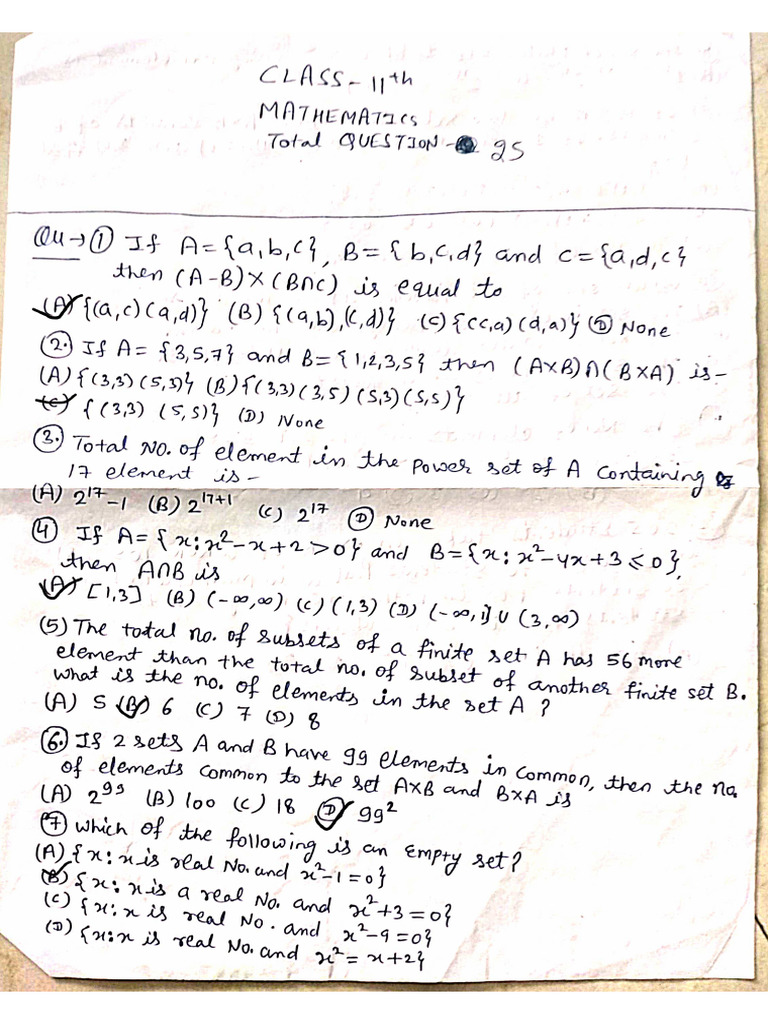 CLASS - 11th
MATHEMATICS
Total QUESTION - 25
QU → ① If A = {a,b,c}, B = {b,c,d} and c = {a,d,c}
then (A-B)×(B∩C) is equal to
(A) {(a,c)(a,d)} (B) {(a,b),(c,d)} (C) {(c,a)(d,a)} (D) None
②. If A = {3,5,7} and B = {1,2,3,5} then (A×B)∩(B×A) is -
(A) {(3,3)(5,3)} (B) {(3,3)(3,5)(5,3)(5,5)}
(C) {(3,3) (5,5)} (D) None
③. Total NO. of element in the power set of A containing
17 element is -
(A) 2^17 - 1 (B) 2^17+1 (C) 2^17 (D) None
④ If A = {x: x²-x+2>0} and B = {x: x²-4x+3≤0},
then A∩B is
(A) [1,3] (B) (-∞,∞) (C) (1,3) (D) (-∞,1] ∪ (3,∞)
(5) The total no. of subsets of a finite set A has 56 more
element than the total no. of subset of another finite set B.
what is the no. of elements in the set A ?
(A) 5 (B) 6 (C) 7 (D) 8
⑥. If 2 sets A and B have 99 elements in common, then the no.
of elements common to the set A×B and B×A is
(A) 2^99 (B) 100 (C) 18 (D) 99²
⑦ which of the following is an empty set?
(A) {x: x is real No. and x²-1=0}
(B) {x: x is a real No. and x²+3=0}
(C) {x: x is real No. and x²-9=0}
(D) {x: x is real No. and x² = x+2}